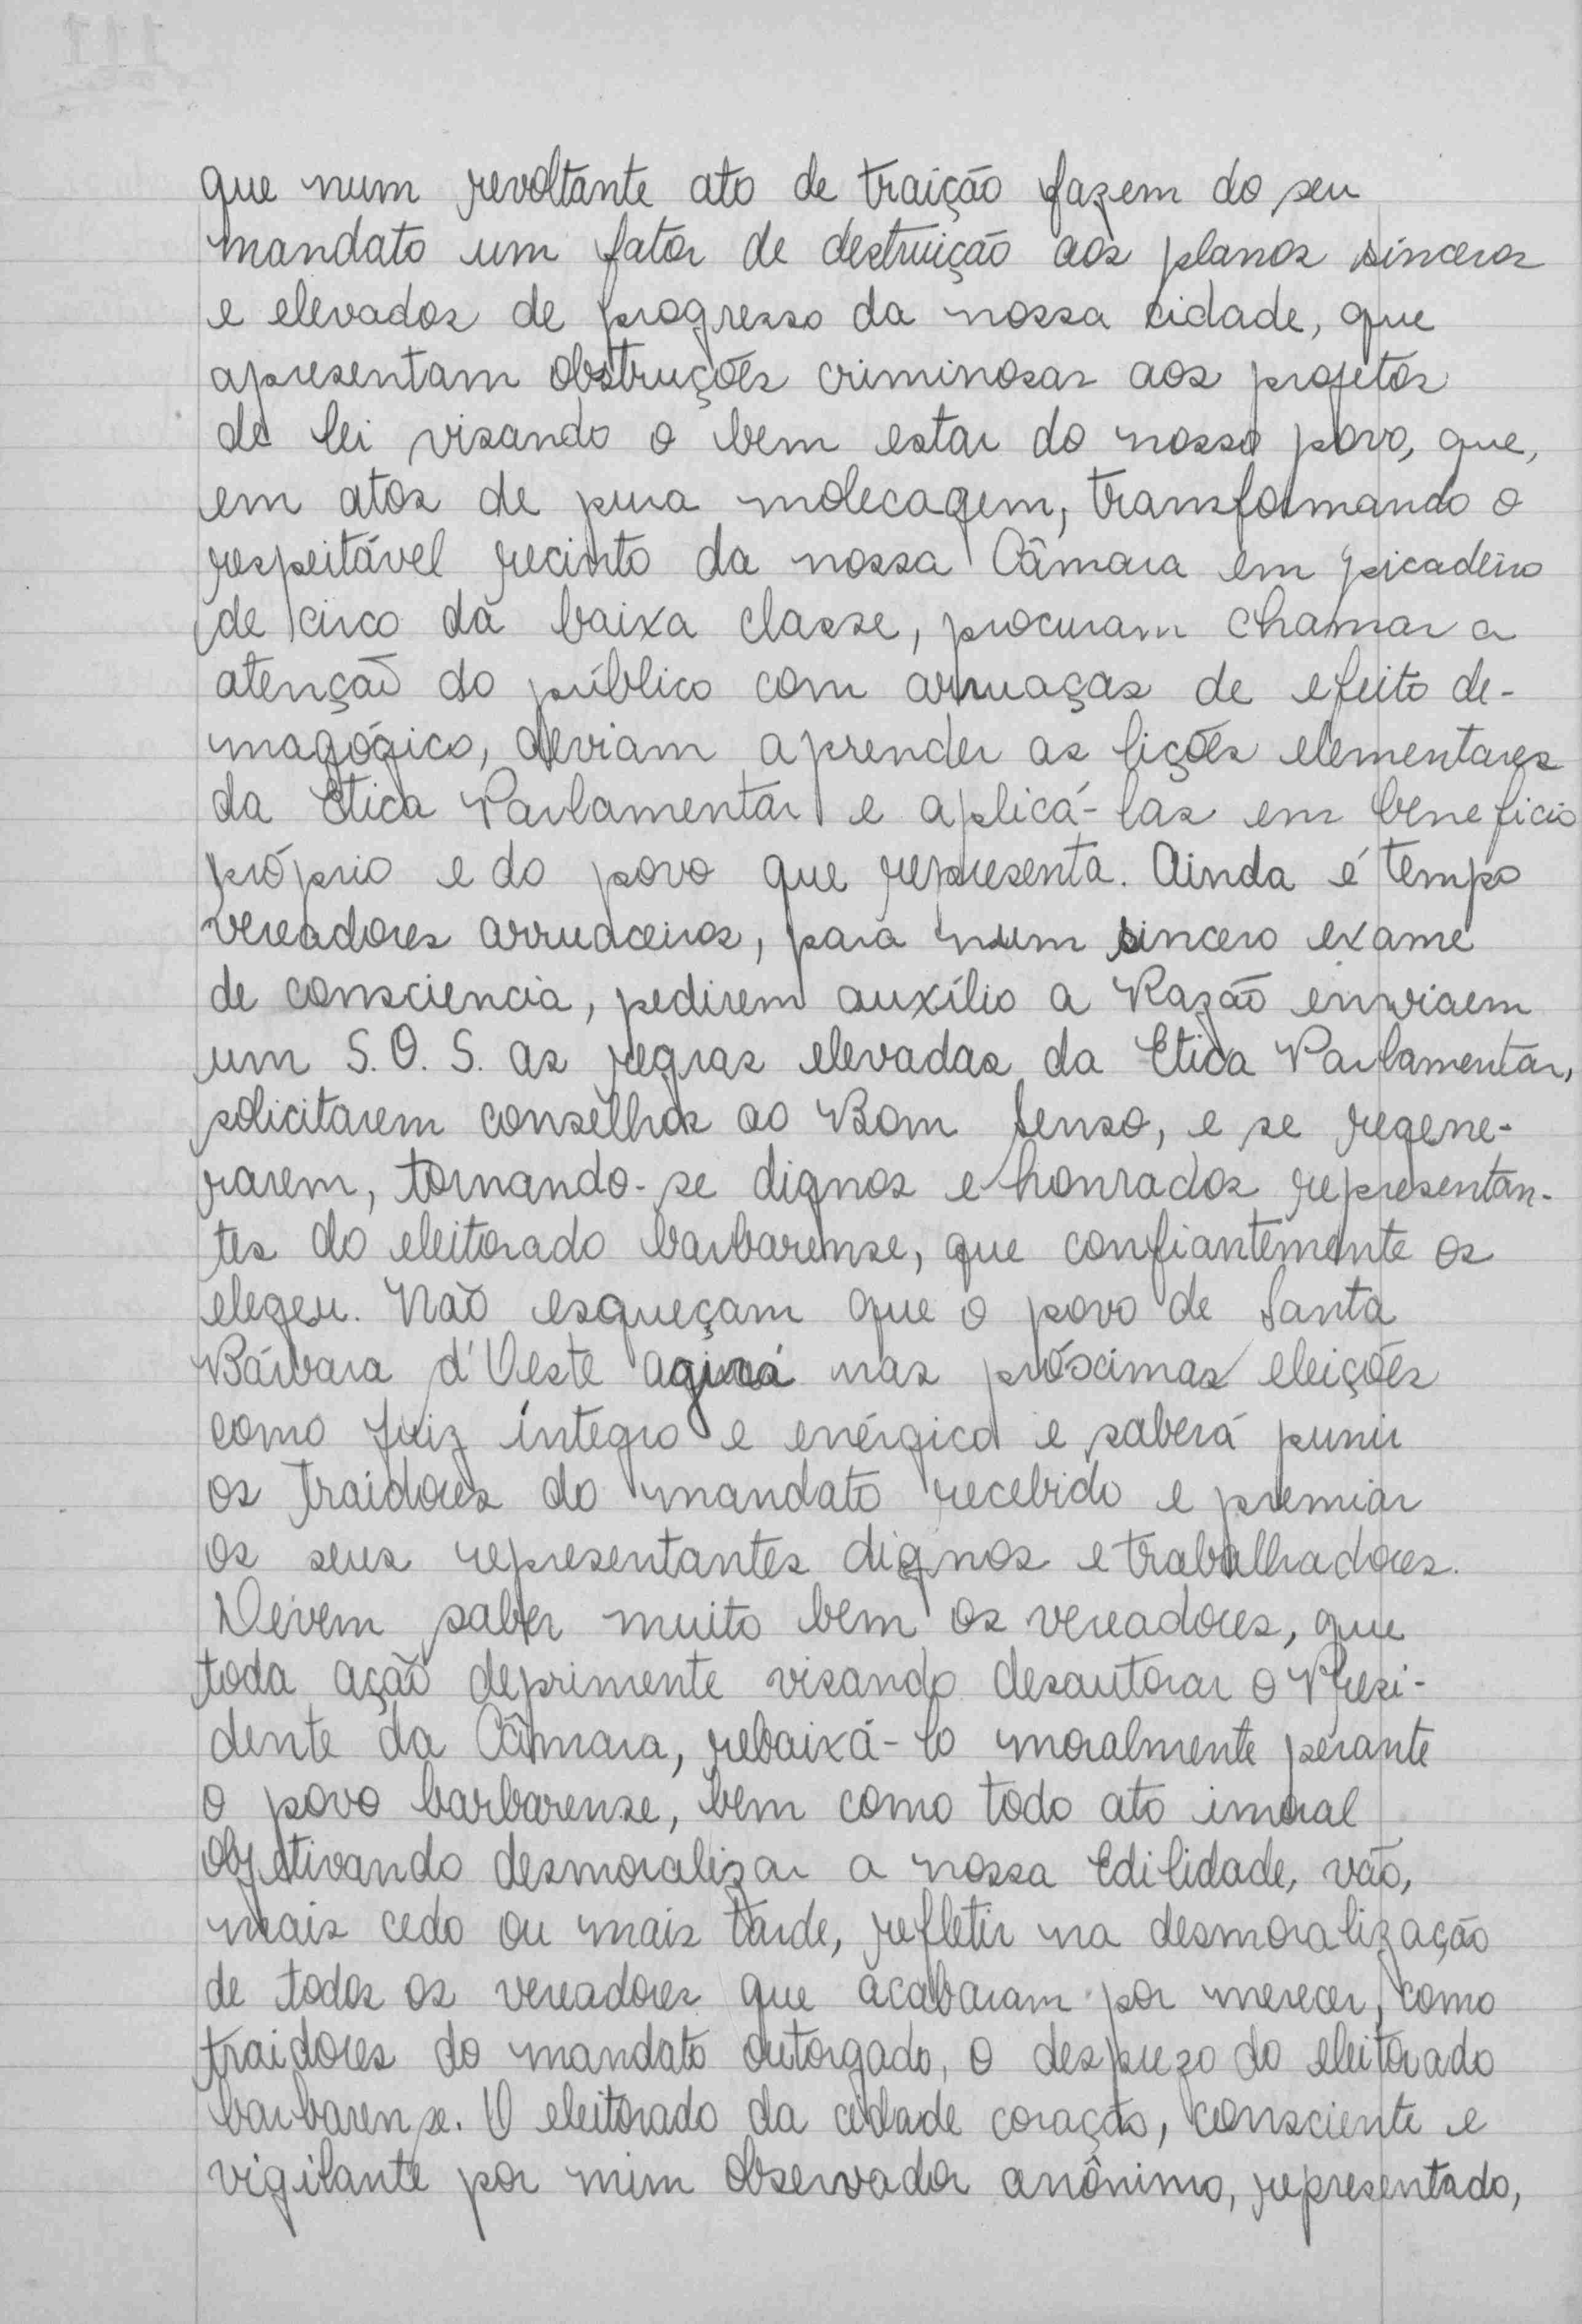 que num revoltante ato de traição fazem do seu
mandato um fator de destruição aos planos sinceros
e elevados de progresso da nossa cidade, que
apresentam obstruções criminosas aos projetos
de lei visando o bem estar do nosso povo, que,
em atos de pura molecagem, transformando o
respeitável recinto da nossa Câmara em picadeiro
de circo da baixa classe, procuram chamar a
atenção do público com arruaças de efeito de-
magógico, deviam aprender as lições elementares
da Etica Parlamentar e aplicá-las em beneficio
próprio e do povo que representa. Ainda é tempo
vereadores arruaceiros, para num sincero exame
de consciencia, pedirem auxílio a Razão enviaem
um S.O.S. as regras elevadas da Etica Parlamentar,
solicitarem conselhos ao Bom Senso, e se regene-
rarem, tornando-se dignos e honrados representan-
tes do eleitorado barbarense, que confiantemente os
elegeu. Não esqueçam que o povo de Santa
Bárbara d'Oeste agirá nas próximas eleições
como juiz íntegro e enérgico e saberá punir
os traidores do mandato recebido e premiar
os seus representantes dignos e trabalhadores.
Devem saber muito bem os vereadores, que
toda ação deprimente visando desautorar o Presi-
dente da Câmara, rebaixá-lo moralmente perante
o povo barbarense, bem como todo ato imoral
objetivando desmoralizar a nossa Edilidade, vão,
mais cedo ou mais tarde, refletir na desmoralização
de todos os vereadores que acabaram por merecer, como
traidores do mandato outorgado, o desprezo do eleitorado
barbarense. O eleitorado da cidade coração, consciente e
vigilante por mim observador anônimo, representado,